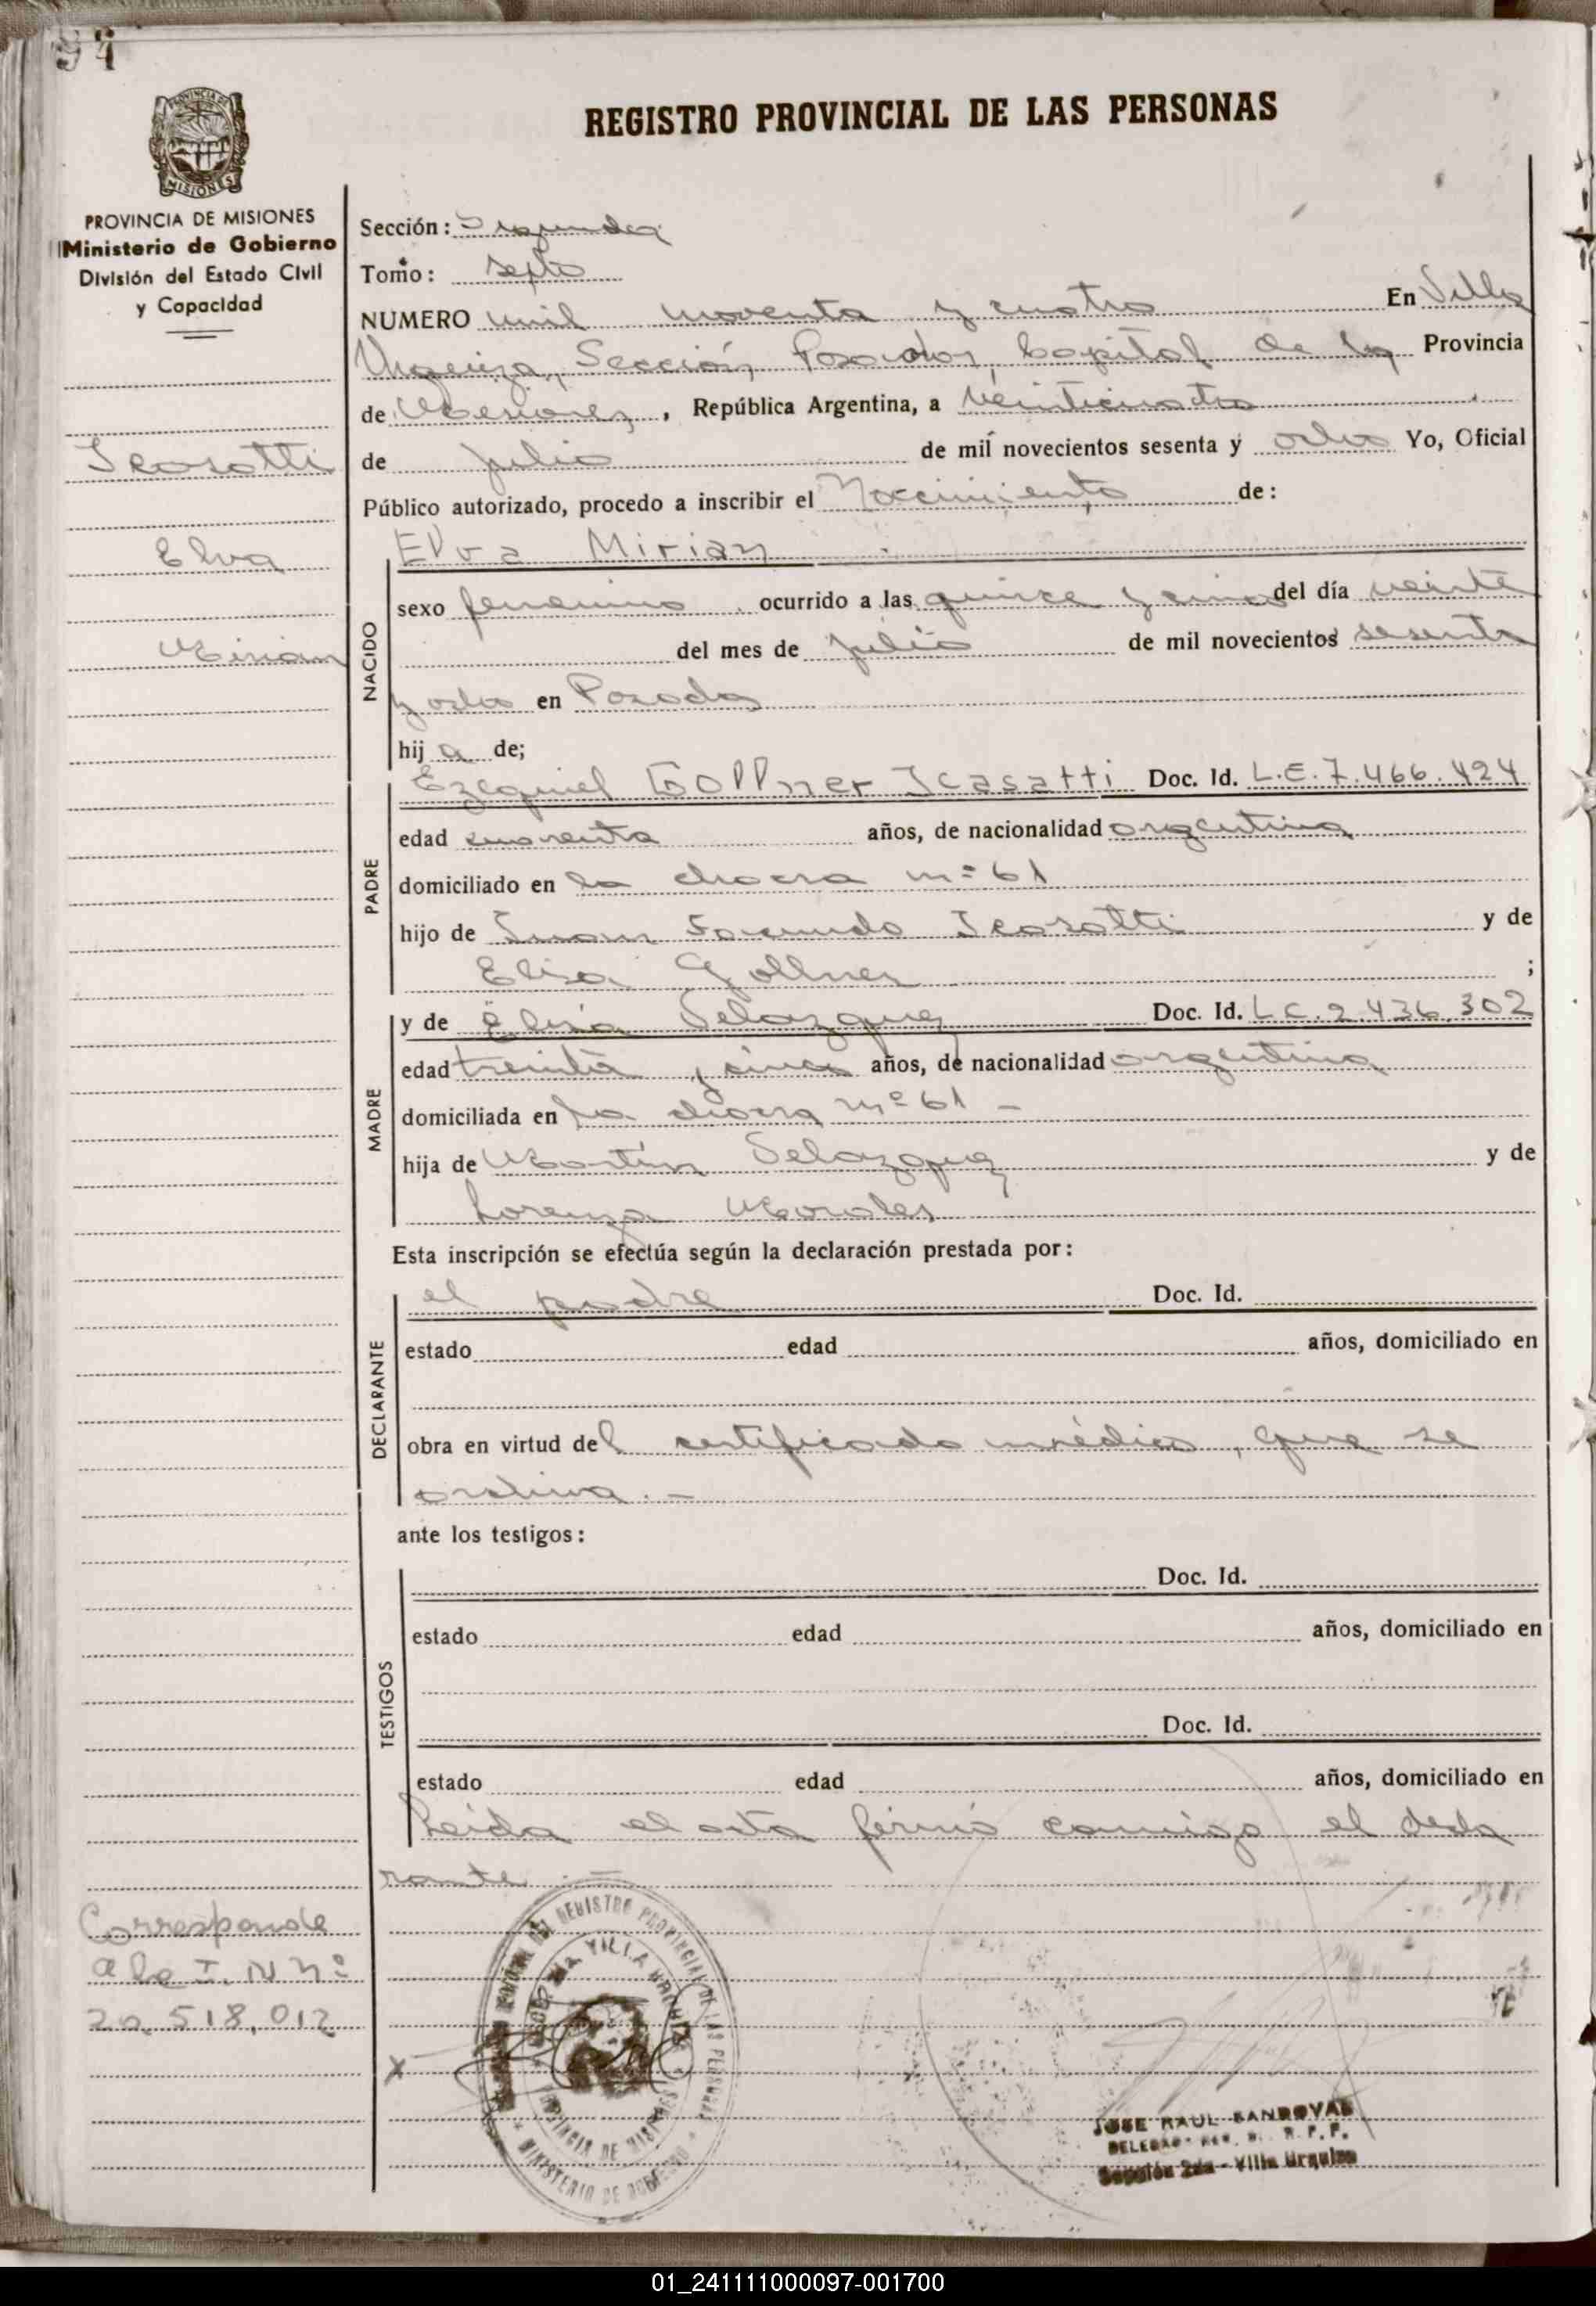 94
REGISTRO PROVINCIAL DE LAS PERSONAS
PROVINCIA DE MISIONES
Ministerio de Gobierno
División del Estado Civil
y Capacidad
Icasatti
Elva
Mirian
Sección: Segunda
Tomo: septo
NUMERO mil noventa y cuatro En Villa
Urquiza, Sección, Posadas, Capital de la Provincia
de Misiones, República Argentina, a veinticuatro
de julio de mil novecientos sesenta y ocho Yo, Oficial
Público autorizado, procedo a inscribir el Nacimiento de:
NACIDO
Elva Mirian
sexo femenino ocurrido a las quince y cinco del día veinte
del mes de julio de mil novecientos sesenta
y ocho en Posadas
hij a de;
PADRE
Ezequiel Gollner Icasatti Doc. Id. L.E. 7.466.424
edad cuarenta años, de nacionalidad argentina
domiciliado en la chacra nº 61
hijo de Juan Facundo Icasatti y de
Elisa Gollner ;
MADRE
y de Elisa Velazquez Doc. Id. L.C. 2.436.302
edad treinta y cinco años, de nacionalidad argentina
domiciliada en la chacra nº 61 -
hija de Martín Velazquez y de
Lorenza Morales
Esta inscripción se efectúa según la declaración prestada por:
DECLARANTE
el padre Doc. Id.
estado edad años, domiciliado en
obra en virtud del certificado médico, que se
archiva. -
ante los testigos:
TESTIGOS
Doc. Id.
estado edad años, domiciliado en
Doc. Id.
estado edad años, domiciliado en
Leida el acta firmó conmigo el decla
rante. =
Corresponde
a la I. N Nº
20.518,012
REGISTRO PROVINCIAL DE LAS PERSONAS
VILLA URQUIZA
PROVINCIA DE MISIONES
MINISTERIO DE GOBIERNO
x
JOSE RAUL SANDOVAL
R. P. P.
Sección 2da - Villa Urquiza
01_241111000097-001700